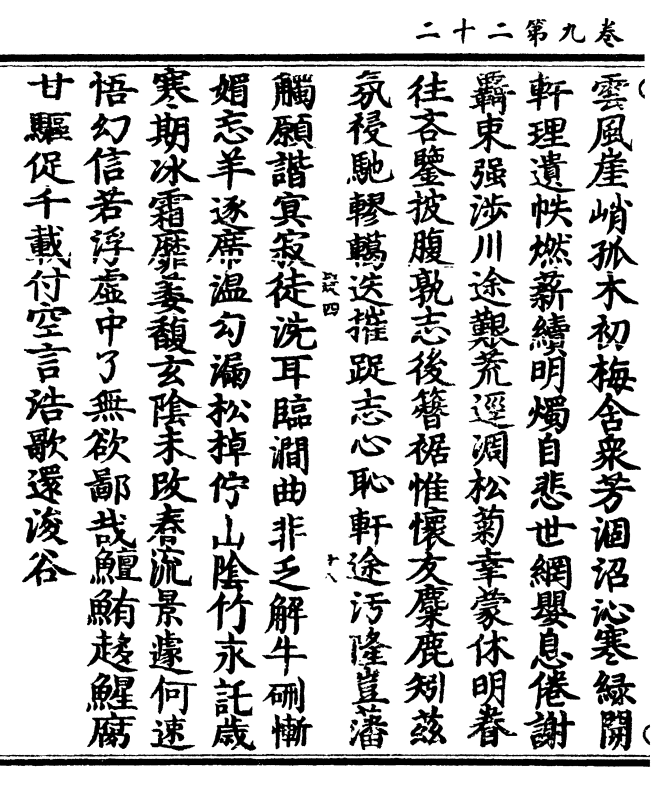 卷九第二十二
雲風崖峭孤木初梅舍衆芳涸沼沁寒綠開
軒理遺帙燃薪續明燭自悲世網嬰息倦謝
覊束强涉川途艱荒逕凋松菊幸蒙休明眷
往吝鑒披腹孰志後簪裾惟懷友麋鹿矧茲
氛祲馳轇轕迭摧踀志心恥軒途汚隆豈藩
四
十八
觸願諧寘寂徒洗耳臨澗曲非乏解牛硎慚
媚忘羊逐席温勾漏松掉佇山陰竹永託歲
寒期冰霜靡萎馥玄陰未改春流景遽何速
悟幻信若浮虛中了無欲鄙哉鱣鮪趍鯹腐
甘驅促千載付空言浩歌還浚谷